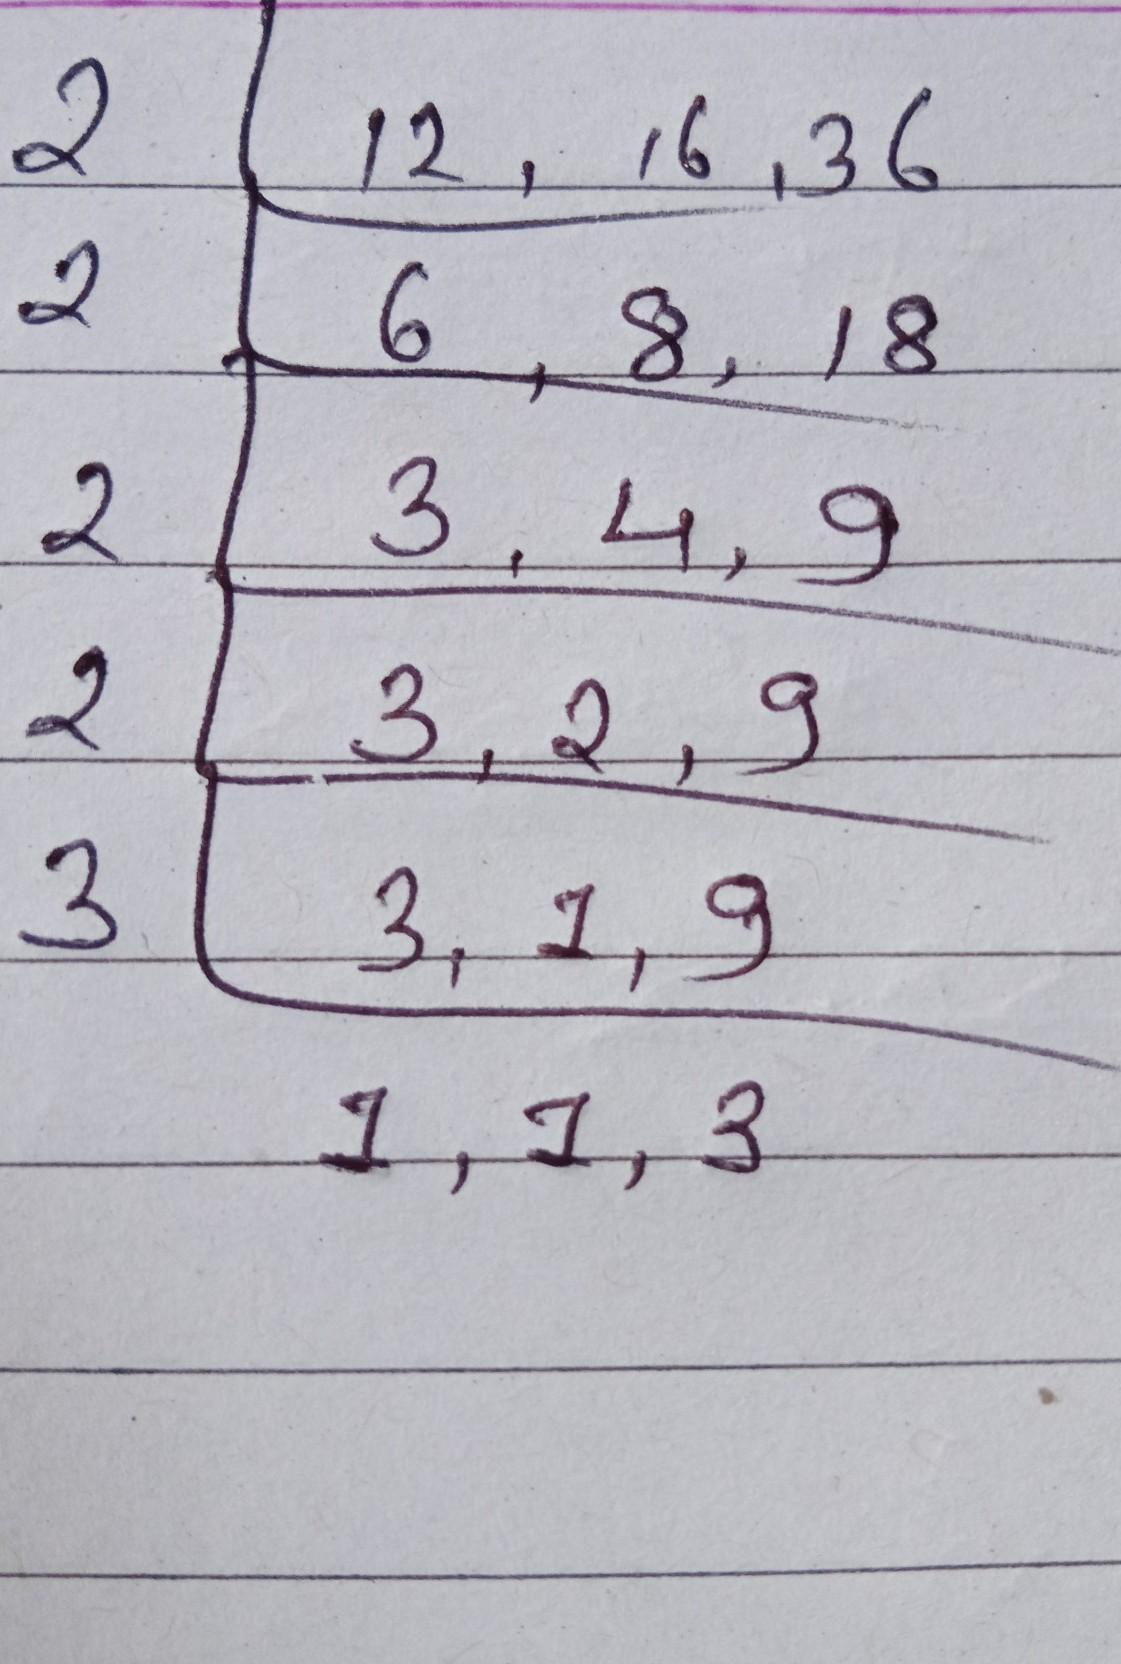 2 12, 16, 36
2 6, 8, 18
2 3, 4, 9
2 3, 2, 9
3 3, 1, 9
1, 1, 3